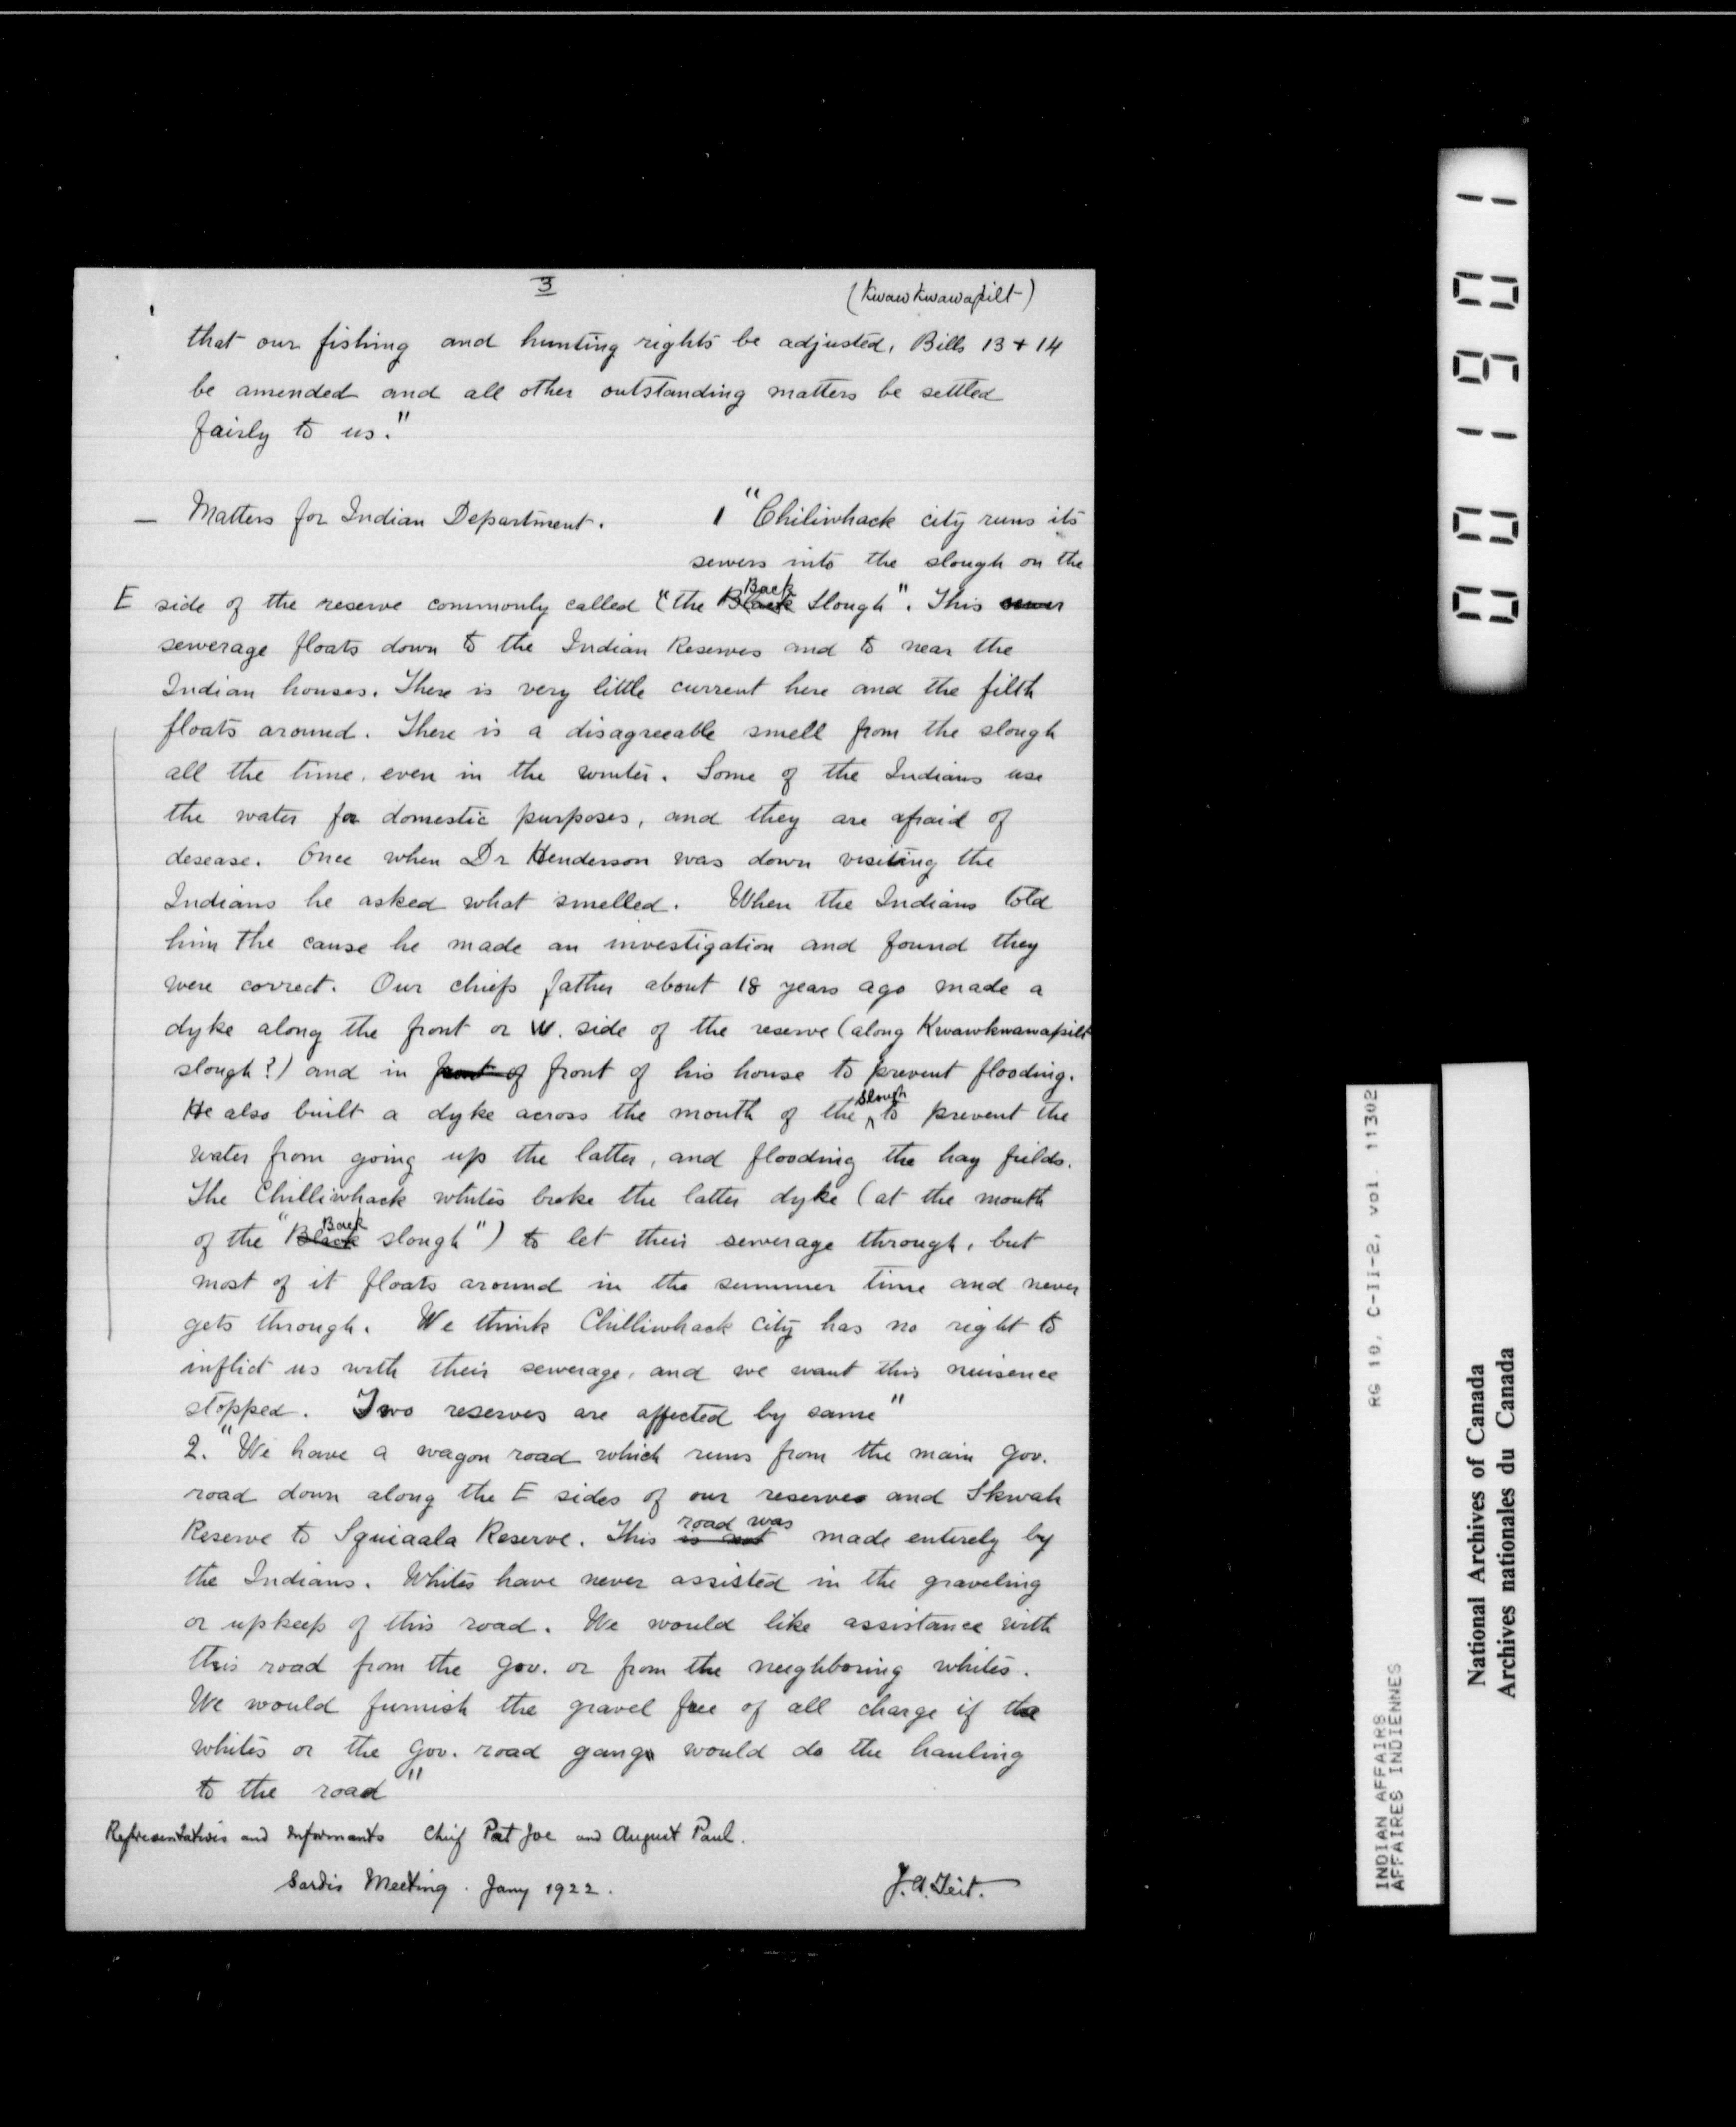 3
(Kwawkwawapilt)
that our fishing and hunting rights be adjusted, Bills 13 + 14
be amended and all other outstanding matters be settled
fairly to us."
— Matters for Indian Department. 1 "Chiliwhack city runs its
sewers into the slough on the
E side of the reserve commonly called "the Black Back Slough". This sewer
sewerage floats down to the Indian Reserves and to near the
Indian houses. There is very little current here and the filth
floats around. There is a disagreeable smell from the slough
all the time, even in the winter. Some of the Indians use
the water for domestic purposes, and they are afraid of
desease. Once when Dr Henderson was down visiting the
Indians he asked what smelled. When the Indians told
him the cause he made an investigation and found they
were correct. Our chiefs father about 18 years ago made a
dyke along the front or W. side of the reserve (along Kwawkwawapilt
slough?) and in front of front of his house to prevent flooding.
He also built a dyke across the mouth of the slough to prevent the
water from going up the latter, and flooding the hay fields.
The Chilliwhack whites broke the latter dyke (at the mouth
of the "Black Back slough") to let their sewerage through, but
most of it floats around in the summer time and never
gets through. We think Chilliwhack City has no right to
inflict us with their sewerage, and we want this nuisence
stopped. Two reserves are affected by same"
2. "We have a wagon road which runs from the main gov.
road down along the E sides of our reserves and Skwah
Reserve to Squiaala Reserve. This is not road was made entirely by
the Indians. Whites have never assisted in the graveling
or upkeep of this road. We would like assistance with
this road from the gov. or from the neighboring whites.
We would furnish the gravel free of all charge if the
whites or the gov. road gangs would do the hauling
to the road"
Representatives and Informants Chief Pat Joe and August Paul.
Sardis Meeting. Jany 1922.
J.A. Teit.
001901
RG 10, C-II-2, vol. 11302
INDIAN AFFAIRS
AFFAIRES INDIENNES
National Archives of Canada
Archives nationales du Canada